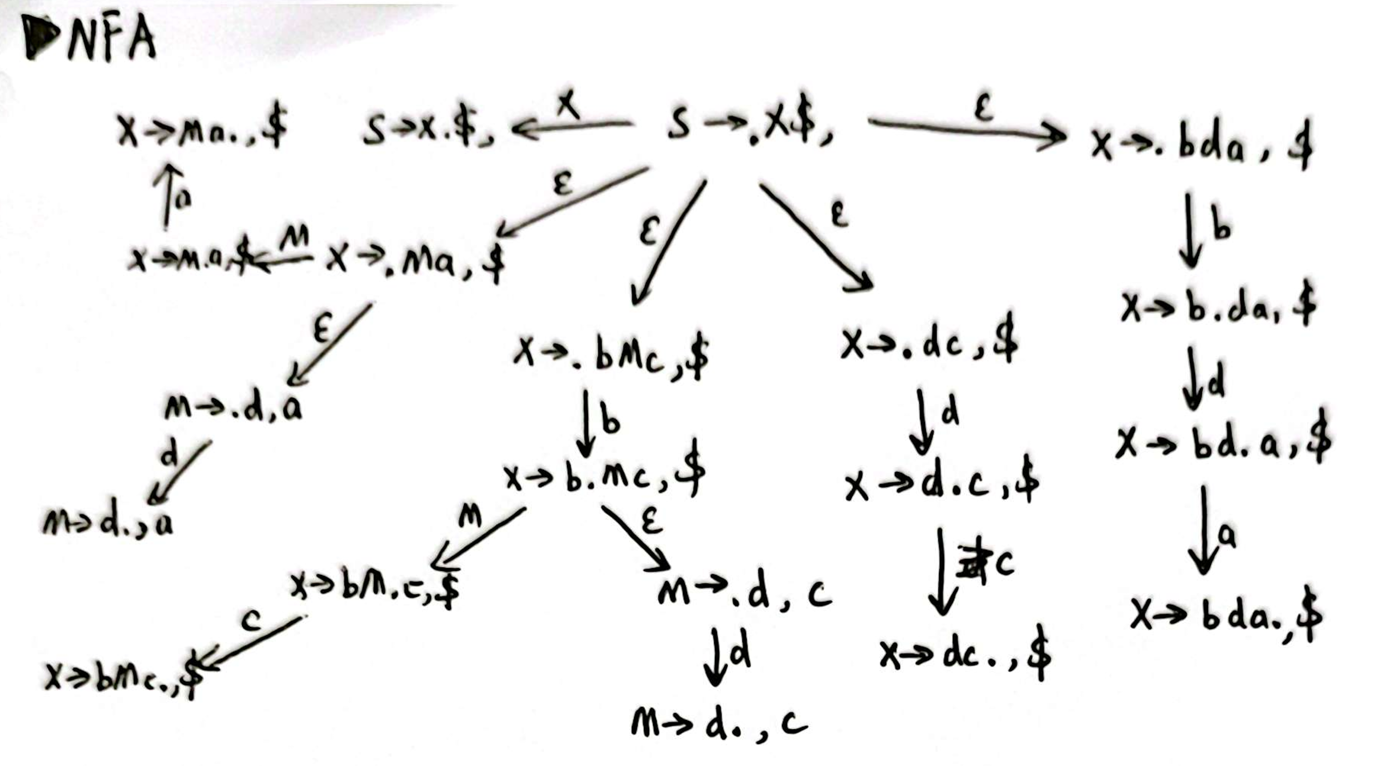 ▶NFA
X→Ma.,$ S→X.$, X S→.X$, ε X→.bda, $
a ε ε ε b
X→M.a,$ M X→.Ma,$ X→b.da,$
ε X→.bMc,$ X→.dc,$ d
M→.d,a b d X→bd.a,$
d X→b.Mc,$ X→d.c,$
M→d.,a M ε c a
X→bM.c,$ M→.d, c X→bda.,$
c d X→dc.,$
X→bMc.,$
M→d., c